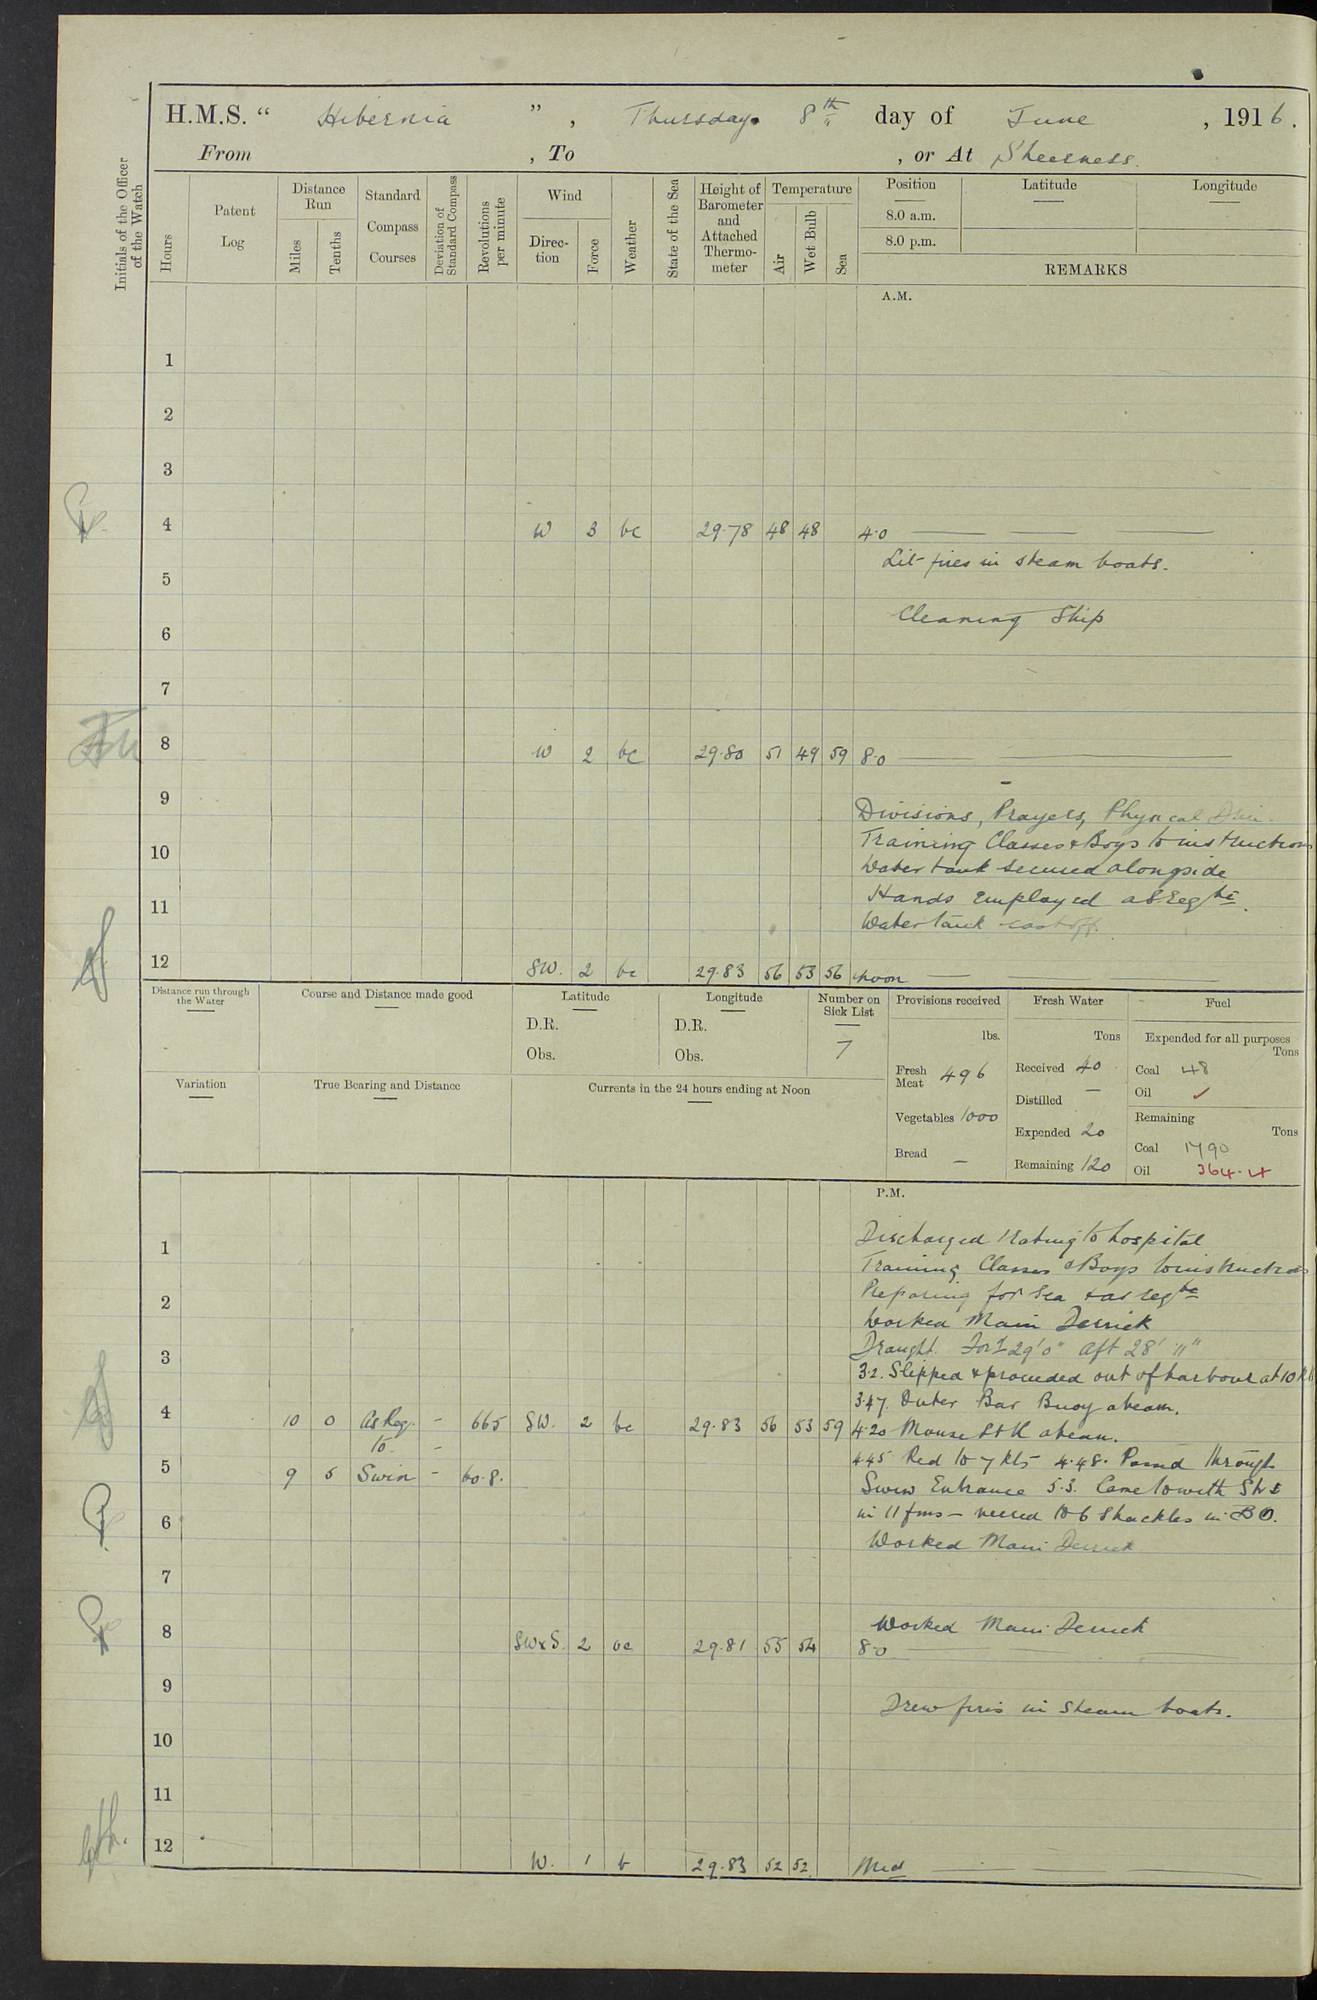 H.M.S. “ Hibernia ” , Thursday. 8th day of June , 1916.
From , To , or At Sheerness.
Initials of the Officer of the Watch
Hours
Patent Log
Distance Run
Miles
Tenths
Standard Compass Courses
Deviation of Standard Compass
Revolutions per minute
Wind
Direc-tion
Force
Weather
State of the Sea
Height of Barometer and Attached Thermo-meter
Temperature
Air
Wet Bulb
Sea
Position Latitude Longitude
8.0 a.m.
8.0 p.m.
REMARKS
A.M.
1
2
3
4 W 3 bc 29.78 48 48 4.0
Lit fires in steam boats.
5
Cleaning Ship
6
7
8 W 2 bc 29.80 51 49 59 8.0
9
Divisions, Prayers, Physical
10 Training Classes & Boys to instruction
Water tank secured alongside
11 Hands employed as reqte.
Water tank cast off.
12 SW. 2 bc 29.83 56 53 56 Noon
Distance run through the Water
Course and Distance made good
Latitude
D.R.
Obs.
Longitude
D.R.
Obs.
Number on Sick List
7
Provisions received
lbs.
Fresh Meat 496
Vegetables 1000
Bread —
Fresh Water
Tons
Received 40
Distilled —
Expended 20
Remaining 120
Fuel
Expended for all purposes
Tons
Coal 48
Oil ✓
Remaining
Tons
Coal 1790
Oil 364.4
Variation
True Bearing and Distance
Currents in the 24 hours ending at Noon
P.M.
Discharged 1 rating to hospital
1 Training Classes & Boys to instruction
Preparing for Sea & as reqte
2 Worked Main Derrick
Draught. Ford 29' 0" Aft 28' 11"
3 3.2. Slipped & proceeded out of harbour at 10
3.47. Outer Bar Buoy abeam.
4 10 0 As Req. – 665 SW. 2 bc 29.83 56 53 59 4.20 Mouse Lt V abeam.
to –
5 9 5 Swin – 60.8. 4.45 Red to 7 kts – 4.48. Passed through
Swin Entrance 5.3. Came to with St
6 in 11 fms – veered to 6 shackles in
Worked Main Derrick
7
8 Worked Main Derrick
SWxS. 2 bc 29.81 55 54 8.0
9
Drew fires in steam boats.
10
11
12 W. 1 b 29.83 52 52. Mid